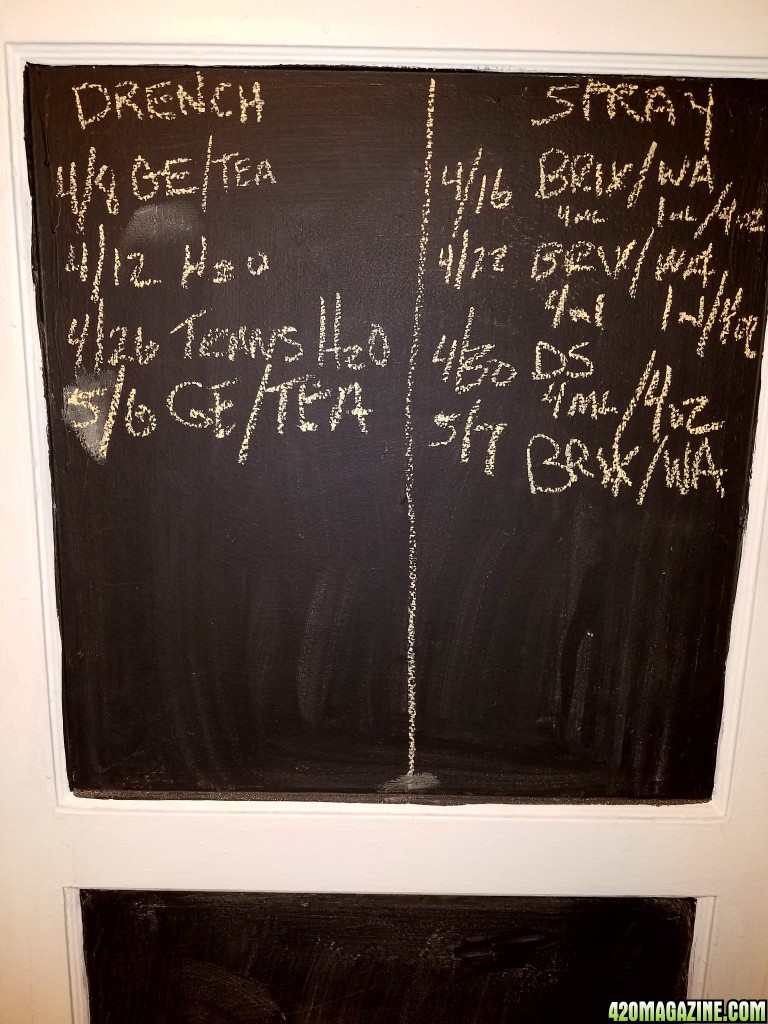 DRENCH
4/8 GE/TEA
4/12 H2O
4/26 H2O
5/6 GE/TEA
SPRAY
4/16 BRIX/WA
4ML 1ML/4OZ
4/22 BRIX/WA
4ML 1ML/4OZ
4/30 DS
4ML/4OZ
5/7
BRIX/WA
420MAGAZINE.COM